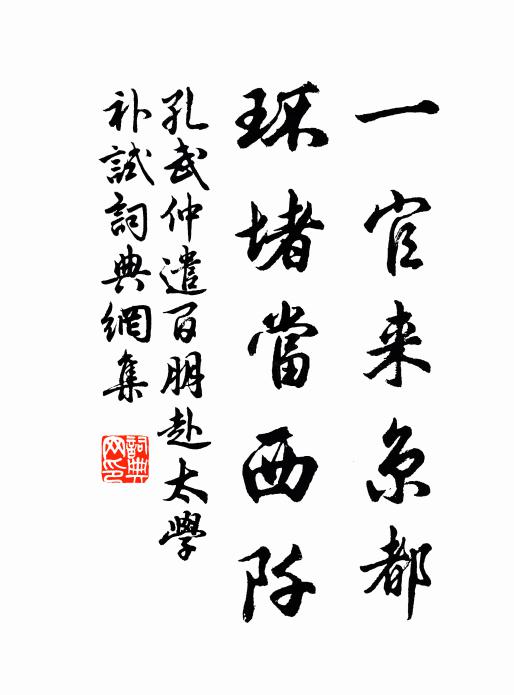 一官来京都
环堵當西阡
孔武仲遣百朋赴太學
补試詞典網集
詞典网印